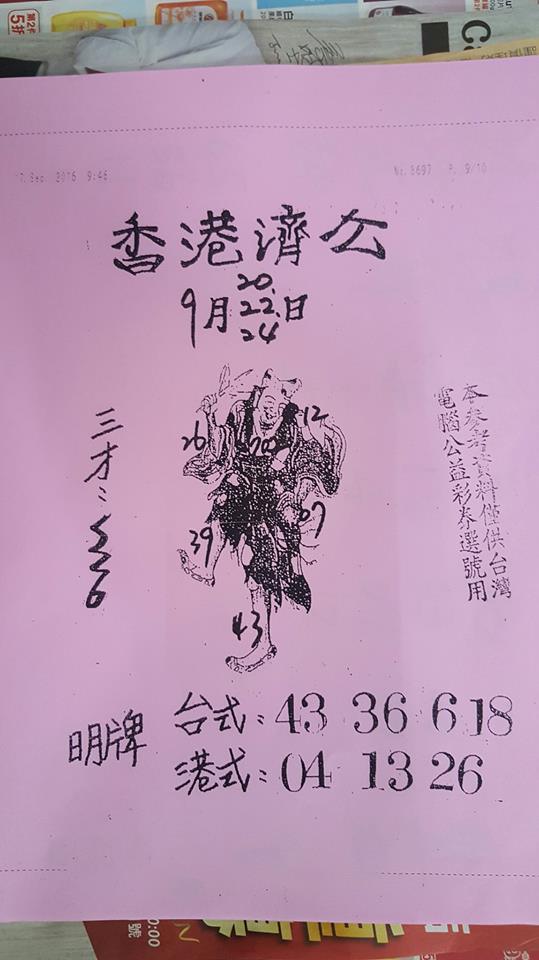 第2
5折
C
7.Sep. 2016 9:46
Nr.8697 P. 9/10
香港濟公
9月20.22.24日
12
26
39
07
43
三才：
本參考資料僅供台灣
電腦公益彩券選號用
明牌
台式：43 36 6 18
港式：04 13 26
0:00
號